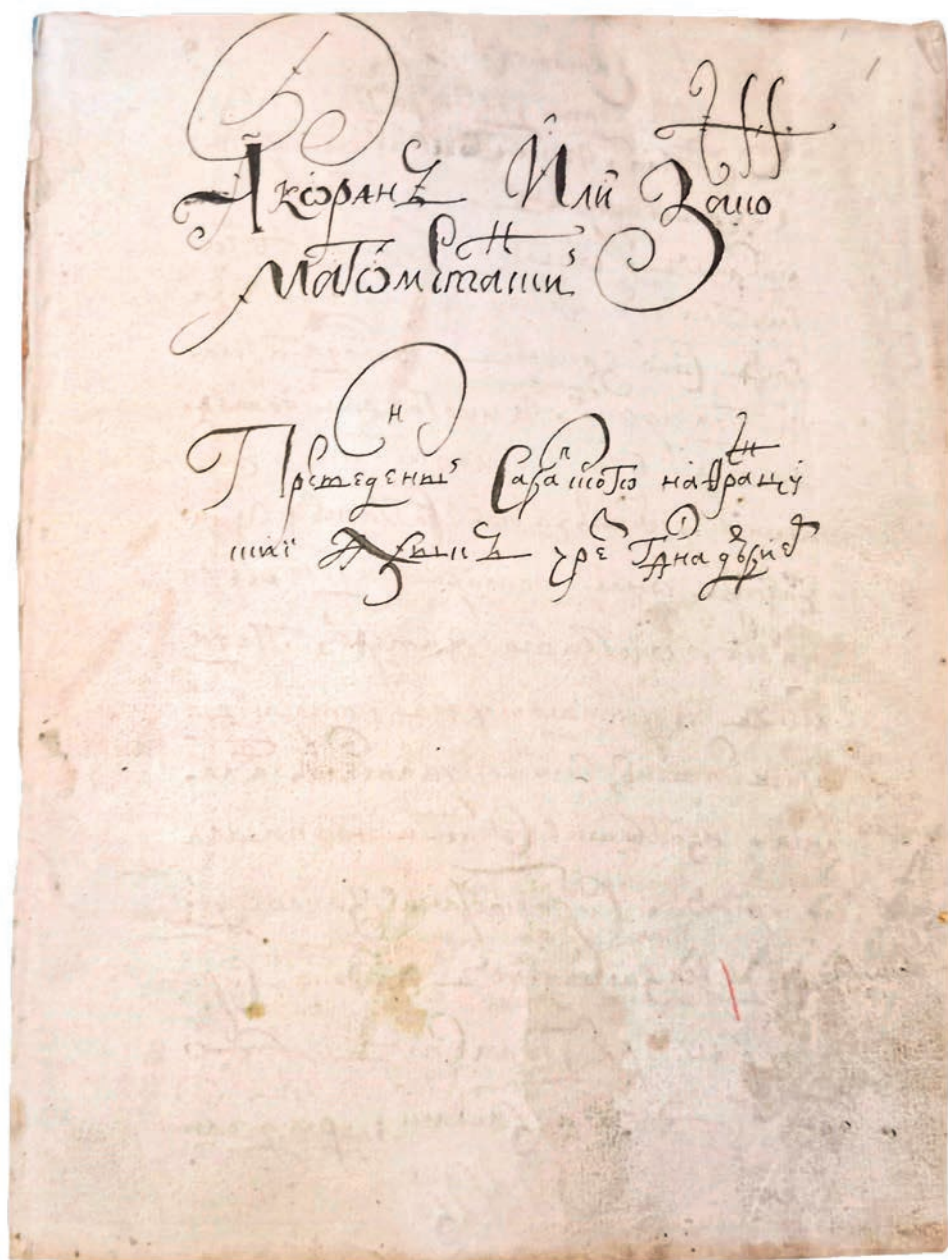 Алкѡранъ Или Законъ
Магѡметанскии
Преведенныи Сарапского наФранцу
скиї Языкъ чрез Гдна дърие